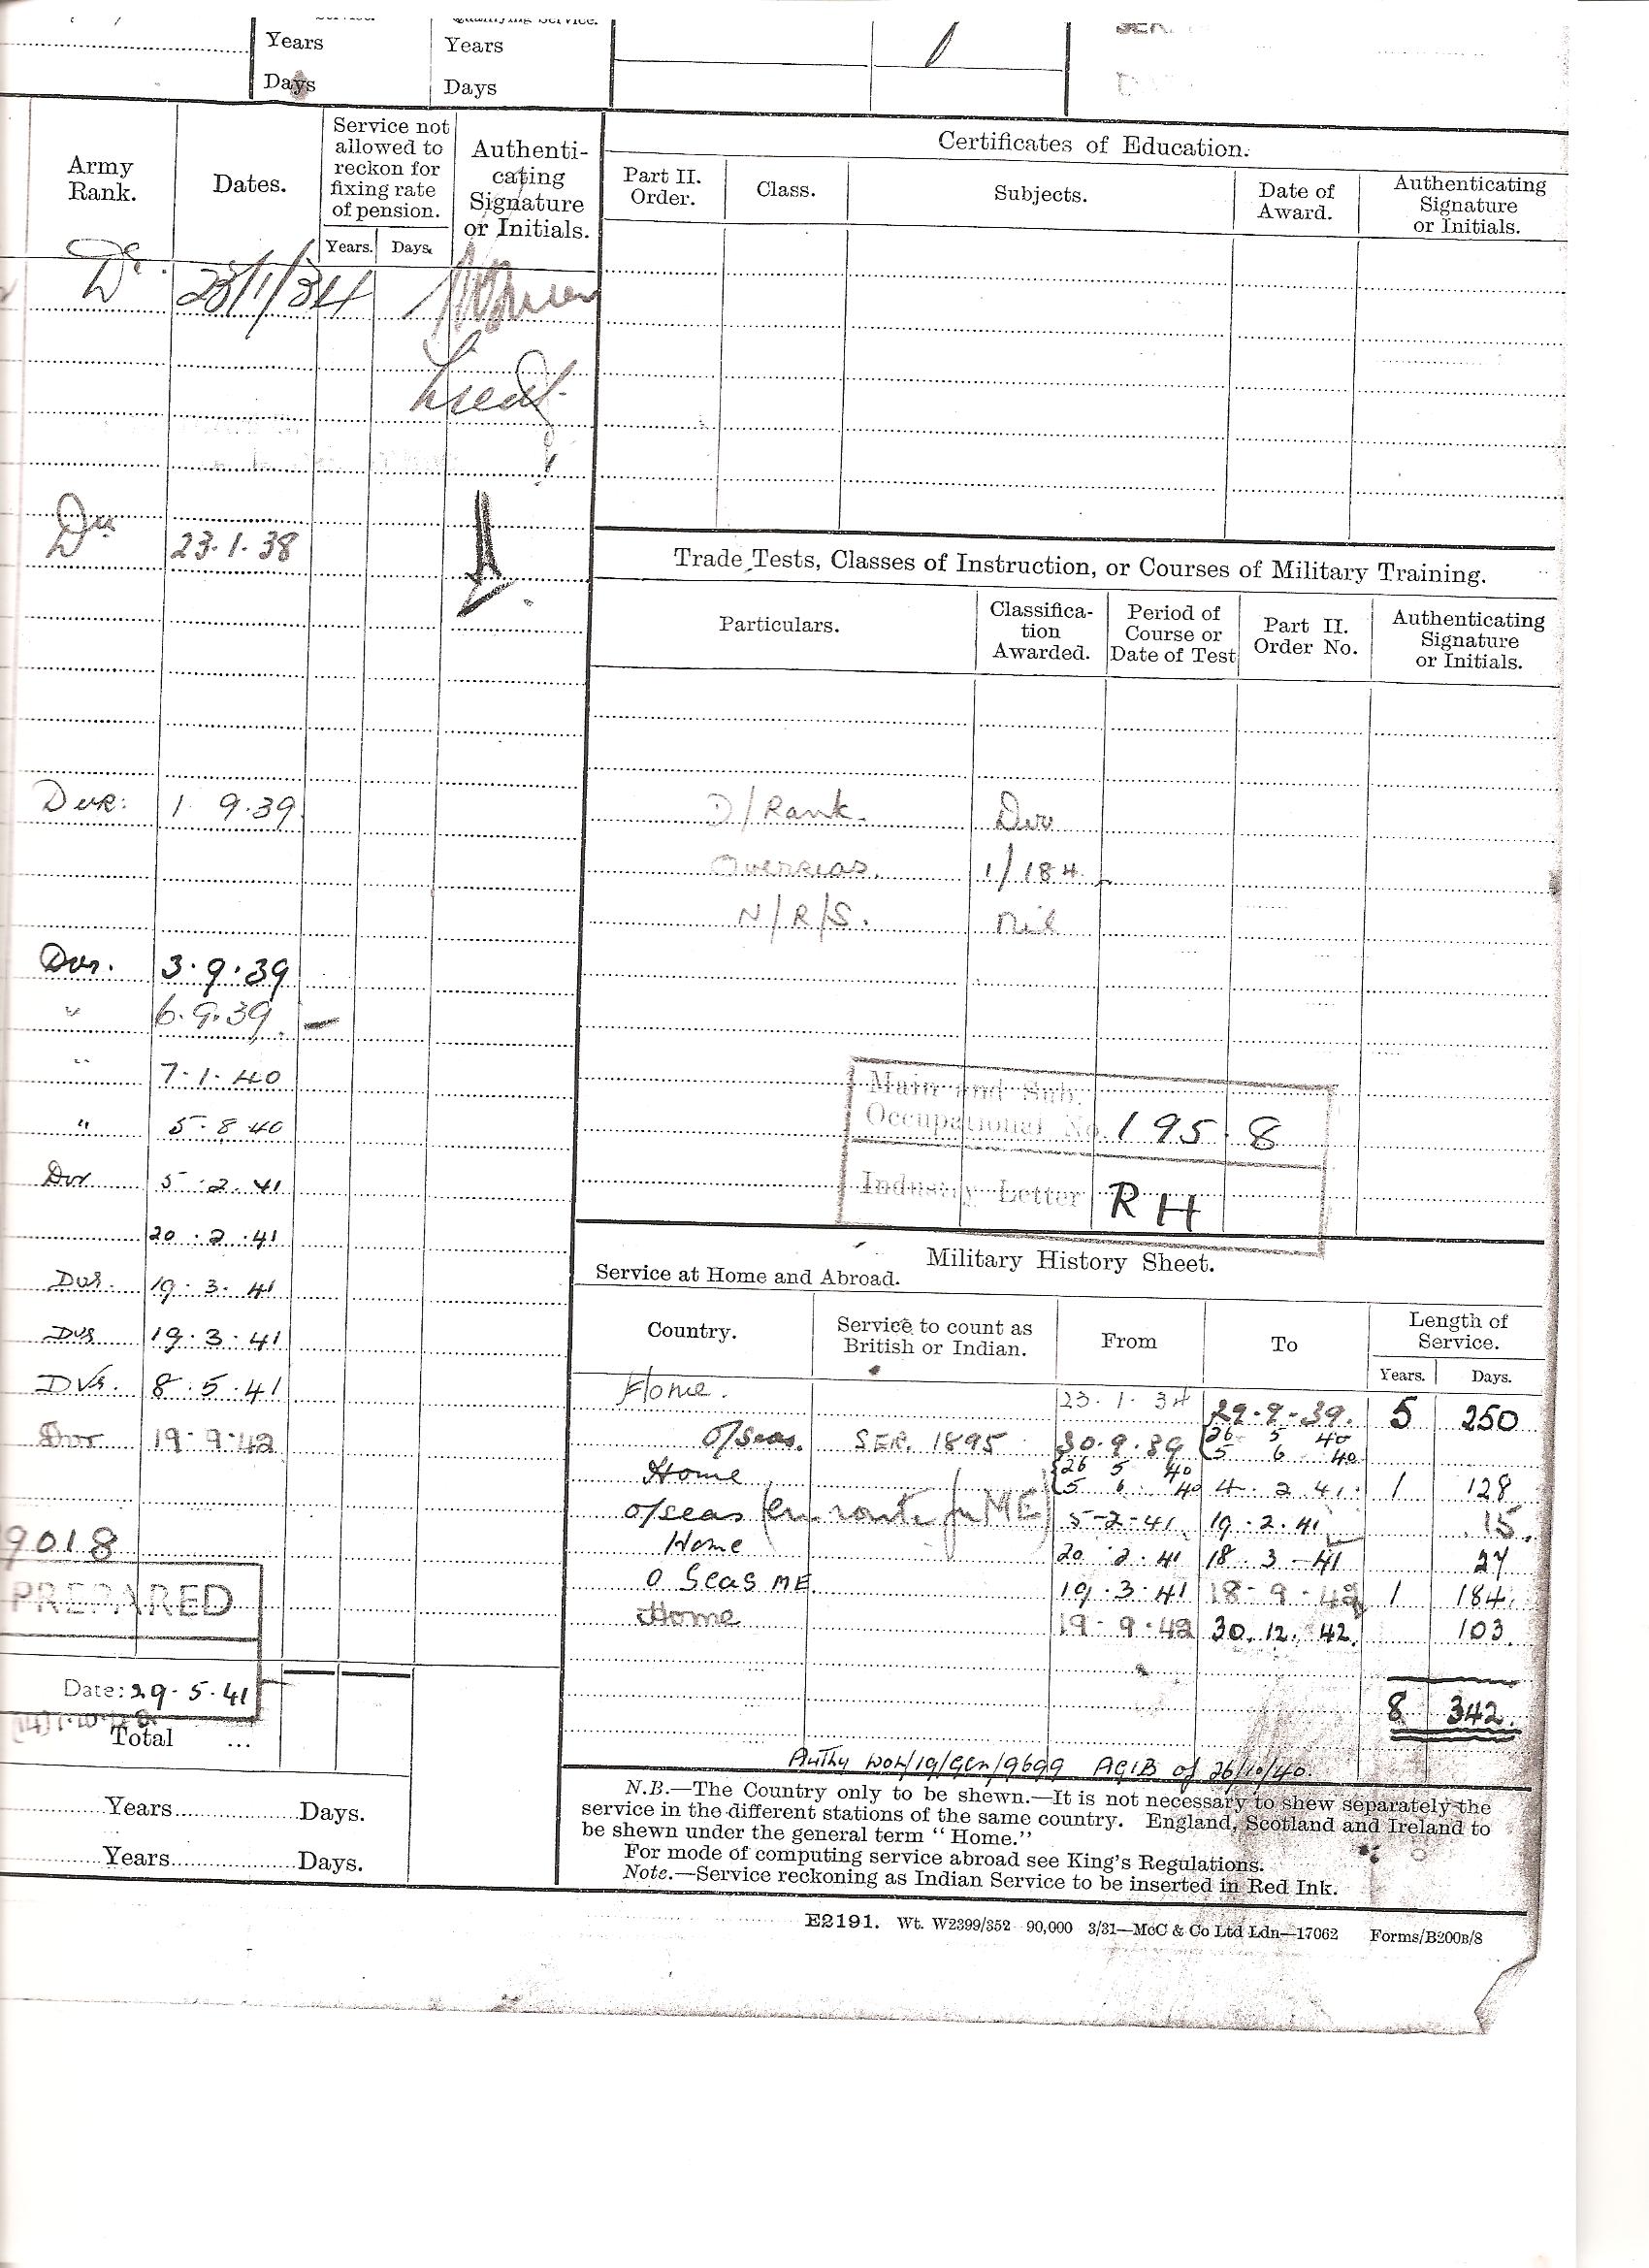 Years
Years
Days
Days
Army
Rank.
Dates.
Service not
allowed to
reckon for
fixing rate
of pension.
Years.
Days.
Authenti-
cating
Signature
or Initials.
23/1/34
Lieut.
23.1.38
Dvr:
1 9.39
Dvr.
3.9.39
"
6.9.39
"
7.1.40
"
5.8.40
Dvr
5.2.41
20.2.41
Dvr.
19.3.41
Dvr
19.3.41
Dvr.
8.5.41
Dvr
19.9.42
9018
PREPARED
Date: 29.5.41
Total ...
Years
Days.
Years
Days.
Certificates of Education.
Part II.
Order.
Class.
Subjects.
Date of
Award.
Authenticating
Signature
or Initials.
Trade Tests, Classes of Instruction, or Courses of Military Training.
Particulars.
Classifica-
tion
Awarded.
Period of
Course or
Date of Test
Part II.
Order No.
Authenticating
Signature
or Initials.
D/Rank. Dvr
Overseas. 1/184
N/R/S. nil
Main and Sub.
Occupational No. 195.8
Industry Letter RH
Military History Sheet.
Service at Home and Abroad.
Country.
Service to count as
British or Indian.
From
To
Length of
Service.
Years.
Days.
Home. 23.1.34 29.9.39. 5 250
O/Seas. SER. 1895 30.9.39 (26 5 40
(5 6 40
Home (26 5 40
(5 6 40 4.2.41. 1 128
O/seas (en route for ME) 5-2-41 19.2.41 15.
Home 20.2.41 18.3-41 27
O Seas ME. 19.3.41 18-9-42 1 184.
Home 19-9.42 30.12.42. 103.
8 342.
Authy WOL/19/Gen/9699 AG1B of 26/10/40.
N.B.—The Country only to be shewn.—It is not necessary to shew separately the
service in the different stations of the same country. England, Scotland and Ireland to
be shewn under the general term "Home."
For mode of computing service abroad see King's Regulations.
Note.—Service reckoning as Indian Service to be inserted in Red Ink.
E2191. Wt. W2399/352 90,000 3/31—McC & Co Ltd Ldn—17062 Forms/B200B/8